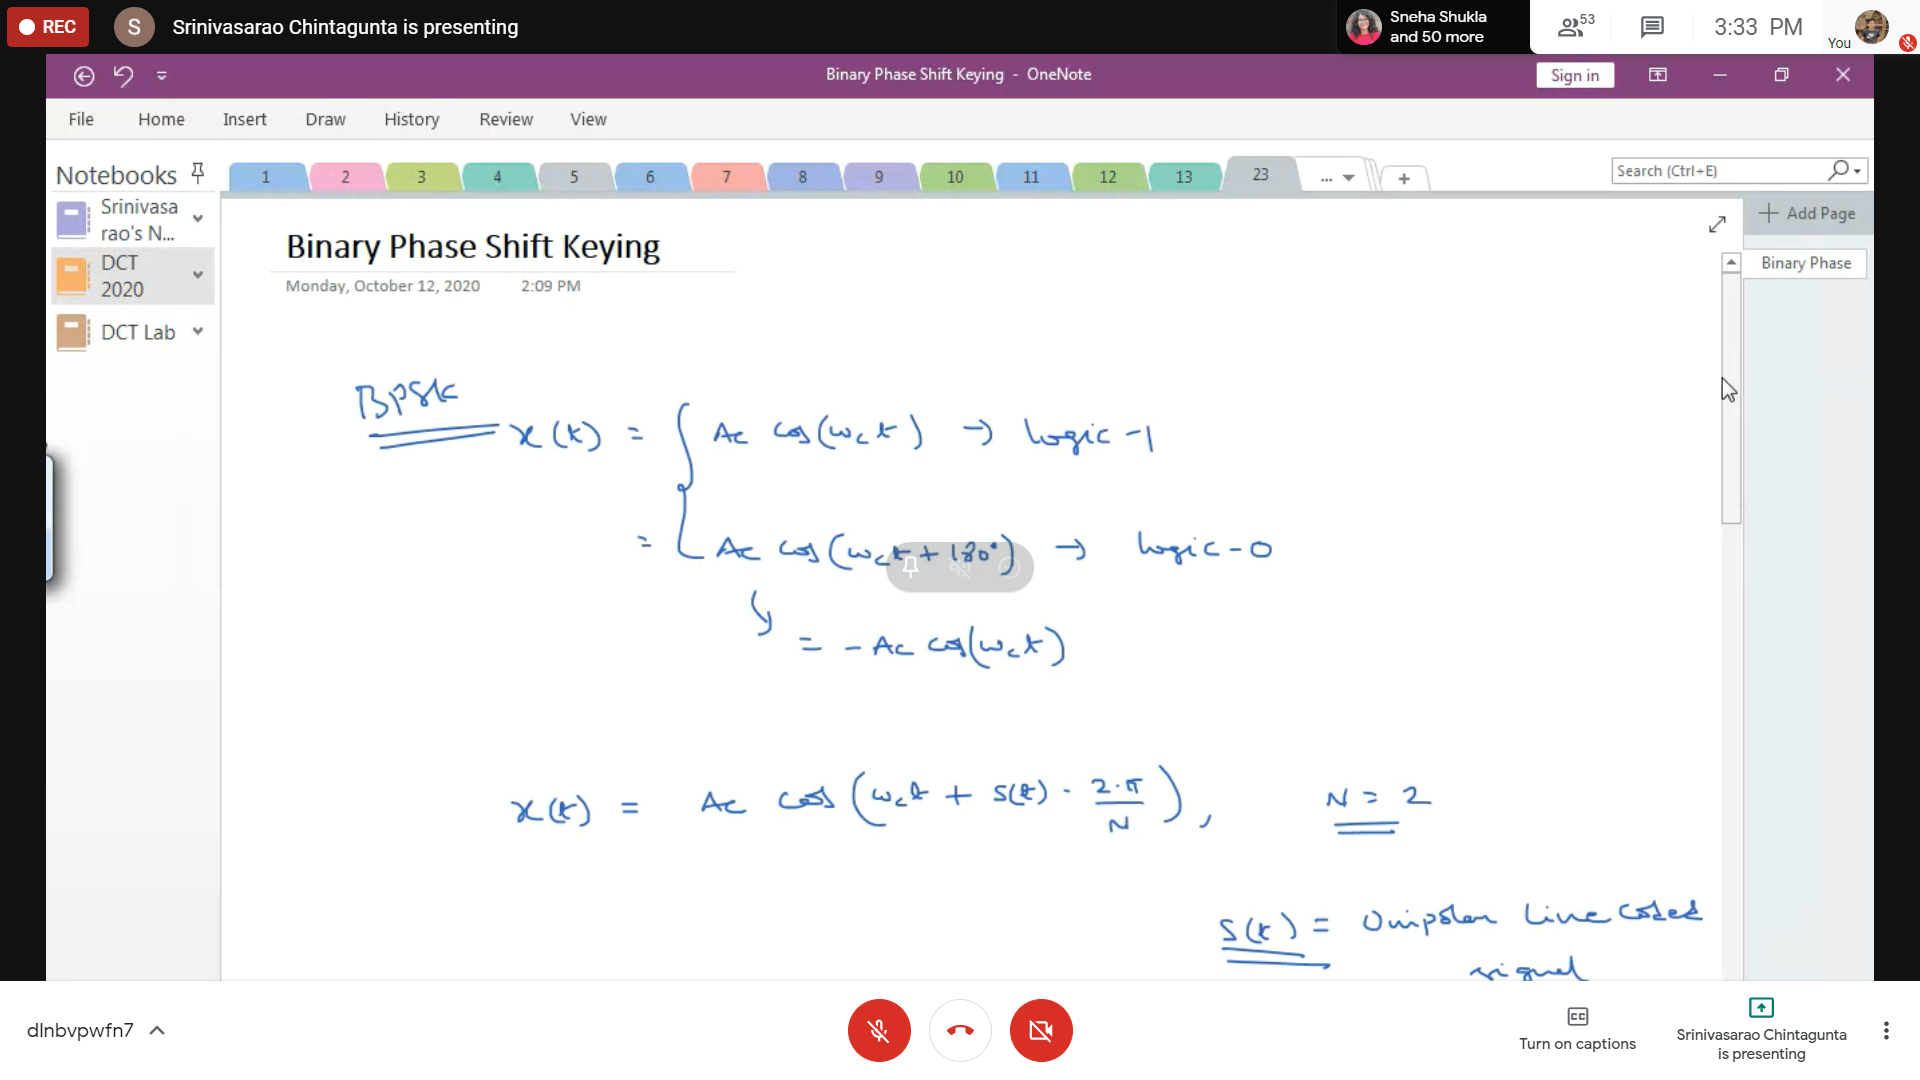 REC
S
Srinivasarao Chintagunta is presenting
Sneha Shukla
and 50 more
53
3:33 PM
You
Binary Phase Shift Keying - OneNote
Sign in
File Home Insert Draw History Review View
Notebooks
1 2 3 4 5 6 7 8 9 10 11 12 13 23 ... +
Search (Ctrl+E)
Srinivasa
rao's N...
DCT
2020
DCT Lab
Add Page
Binary Phase
Binary Phase Shift Keying
Monday, October 12, 2020 2:09 PM
BPSK
x(t) = { Ac cos(ωct) → logic-1
= Ac cos(ωct + 180°) → logic-0
= -Ac cos(ωct)
x(t) = Ac cos(ωct + s(t) · 2·π/N), N = 2
s(t) = Unipolar Line coded
signal
dlnbvpwfn7
CC
Turn on captions
Srinivasarao Chintagunta
is presenting